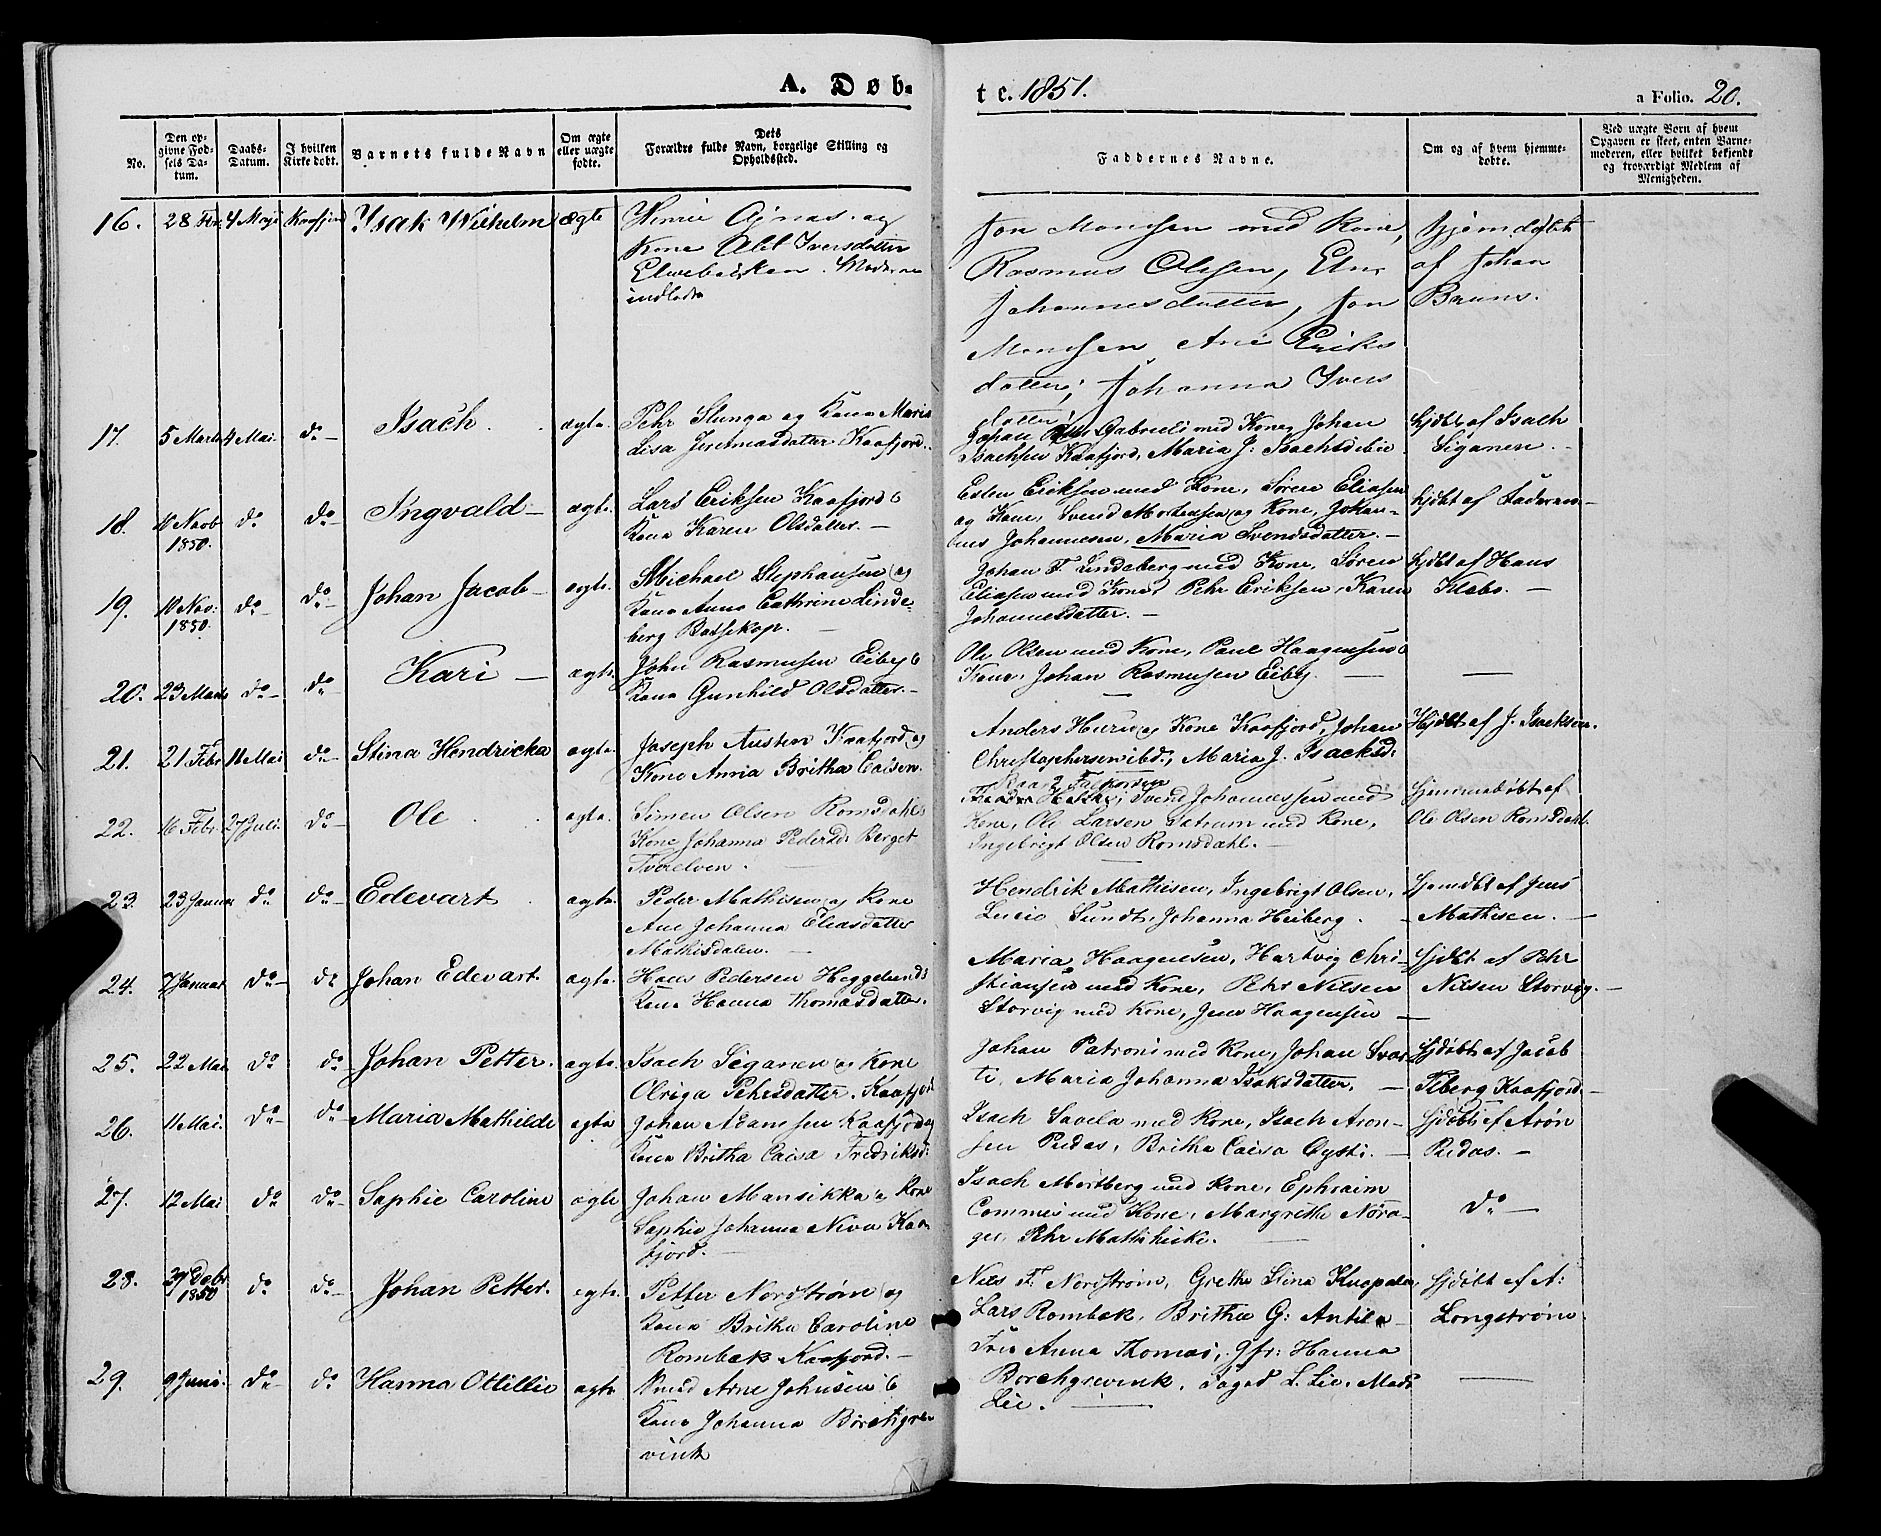 A. Døb-
te. 1851.
a Folio. 20.
No.
Den op-
givne Fød-
sels Da-
tum.
Daabs-
Datum.
I hvilken
Kirke døbt.
Barnets fulde Navn
Om ægte
eller uægte
fødte.
Dets
Forældre fulde Navn, borgelige Stilling og
Opholdssted.
Faddernes Navne.
Om og af hvem hjemme-
døbte.
Ved uægte Børn af hvem
Opgaven er skeet, enten Barne-
moderen, eller hvilket bekjendt
og troværdigt Medlem af
Menigheden.
16. 28 Febr 4 Maji Kaafjord Isak Wilhelm ægte
og
Kone Abel Iversdatter
Jon Monsen med Kone,
Rasmus Olsen,
Johannesdatter, Jon
Monsen Eriks
datter, Johanna Ivers
datter
Hjemdøbt
af Johan
Bruns.
17. 5 Marts 4 Mai do Isach. ægte
Pehr Slunga og Kone Maria
Lisa Kaafjord.
Johan Gabrieli med Kone, Johan
Isachsen Kaafjord, Maria J. Isachsdtr
hjdbt af Isach
Siganen.
18. 10 Novb
1850. do do Ingvald ægte
Lars Eriksen Kaafjord &
Kone Karen Olsdatter.
Esten Eriksen med Kone, Sören Eliasen
og Kone, Svend Mortensen og Kone, Johan-
nes Johannesen, Maria Svendsdatter.
hjdbt af Faderen
19. 10 Nov:
1850. do do Johan Jacob ægte
Michael Stephansen og
Kone Anna Cathrine Linde-
berg Bossekop.
Johan F. Lindeberg med Kone, Sören
Eliasen med Kone, Pehr Eriksen, Karen
Johannesdatter.
hjdbt af Hans
Klæbo.
20. 23 Marts do do Kari ægte
John Rasmusen Eiby &
Kone Gunhild Olsdatter.
Ole Olsen med Kone, Paul Haagensen &
Kone, Johan Rasmusen Eiby.
21. 21 Febr 11 Mai do Stina Hendricka ægte
Joseph Austen Kaafjord og
Kone Anna Britha Caisen.
Anders Huru og Kone Kaafjord, Johan
Christophersen ibd., Maria J. Isacksd.
Hjdbt af J. Isacksen.
22. 16 Febr. 27 Juli do Ole ægte
Simen Olsen Romsdahl &
Kone Johanna Pedersd. Berget
Tverelven.
Svend Johannessen med
Kone, Ole Larsen med Kone,
Ingebrigt Olsen Romsdahl.
Hjemmedøbt af
Ole Olsen Romsdahl
23. 23 Januar do do Edevart ægte
Peder Mathisen og Kone
Ane Johanna Eliasdatter
Mathisdalen.
Hendrik Mathisen, Ingebrigt Olsen,
Lucie Sundt, Johanna Heiberg.
Hjemdbt af Jens
Mathisen.
24. 7 Januar do do Johan Edevart. ægte
Hans Pedersen
Kone Hanna Thomasdatter.
Maria Haagensen, Hartvig Chri-
stiansen med Kone, Pehr Nilsen
Storvig med Kone, Jens Haagensen
hjdbt af Pehr
Nilsen Storvig.
25. 22 Mai do do Johan Petter. ægte
Isach Siganen og Kone
Olriga Pehrsdatter. Kaafjord
Johan Patroni med Kone, Johan Svar-
ti, Maria Johanna Isaksdatter.
hjdøbt af Jacob
Kaafjord
26. 11 Mai. do do Maria Mathilde ægte
Johan Adamsen Kaafjord og
Kone Britha Caisa Fredriksd.
Isach Savela med Kone, Isach Aron-
sen Pudas, Britha Caisa Cysti.
hjdøbt af Arøn
Pudas.
27. 12 Mai do do Sophie Caroline ægte
Johan Mansikka & Kone
Sophie Johanna Niva Kaa-
fjord.
Isach Mortberg med Kone, Ephraim
Commes med Kone, Margrethe Nöra-
Pehr
do
28. 27 Decbr
1850 do do Johan Petter. ægte
Petter Nordström og
Kone Britha Caroline
Rombak Kaafjord.
Nils F. Nordström, Grethe Stina
Lars Rombak, Britha G: Antila
hjdøbt af A:
Longström
29. 9 Juni. do do Hanna Ottillie ægte
Smed Arne Johnsen &
Kone Johanna Borchgre-
vink
Anna Thomas, Jfr: Hanna
Borchgrevink, L. Lie, Mads
Lie.